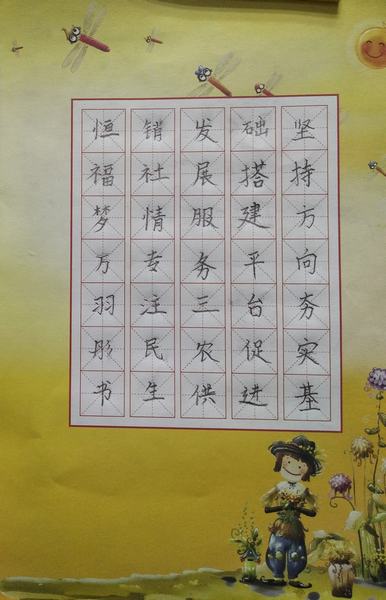 坚持方向夯实基
础搭建平台促进
发展服务三农供
销社情专注民生
恒福梦万羽彤书